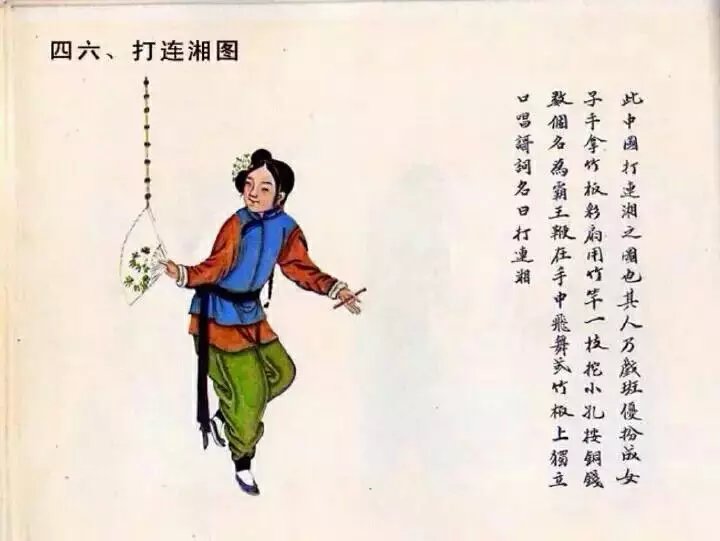 四六、打连湘图
此中國打連湘之圖也其人乃戲班優扮成女
子手拿竹板彩扇用竹竿一枝挖小孔按銅錢
数個名為霸王鞭在手中飛舞或竹板上獨立
口唱詞名曰打連湘